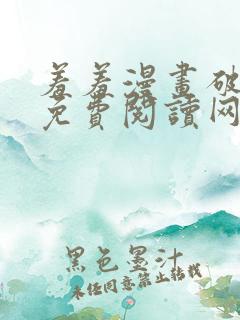 羞羞漫畫破
免費閱讀网
黑色墨汁
未经同意禁止转载